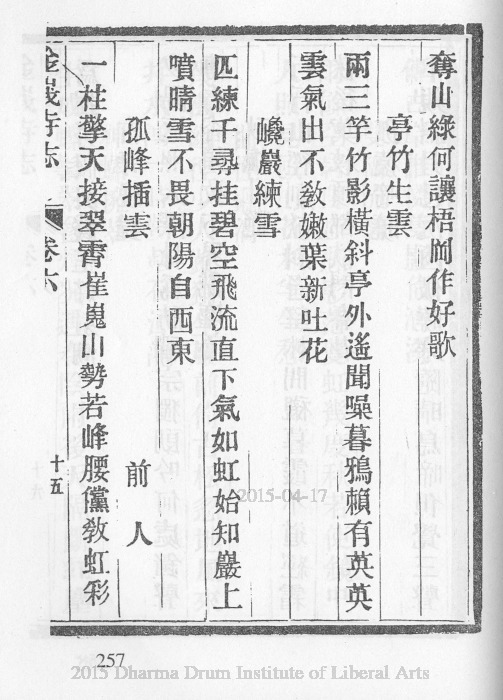 奪山綠何讓梧岡作好歌
亭竹生雲
兩三竿竹影橫斜亭外遙聞噪暮鴉賴有英英
雲氣出不敎嫩葉新吐花
巉巖練雪
匹練千尋挂碧空飛流直下氣如虹始知巖上
噴晴雪不畏朝陽自西東
孤峰插雲 前人
一柱擎天接翠霄崔嵬山勢若峰腰儻敎虹彩
金峩寺志 卷六 十五
2015-04-17
257
2015 Dharma Drum Institute of Liberal Arts